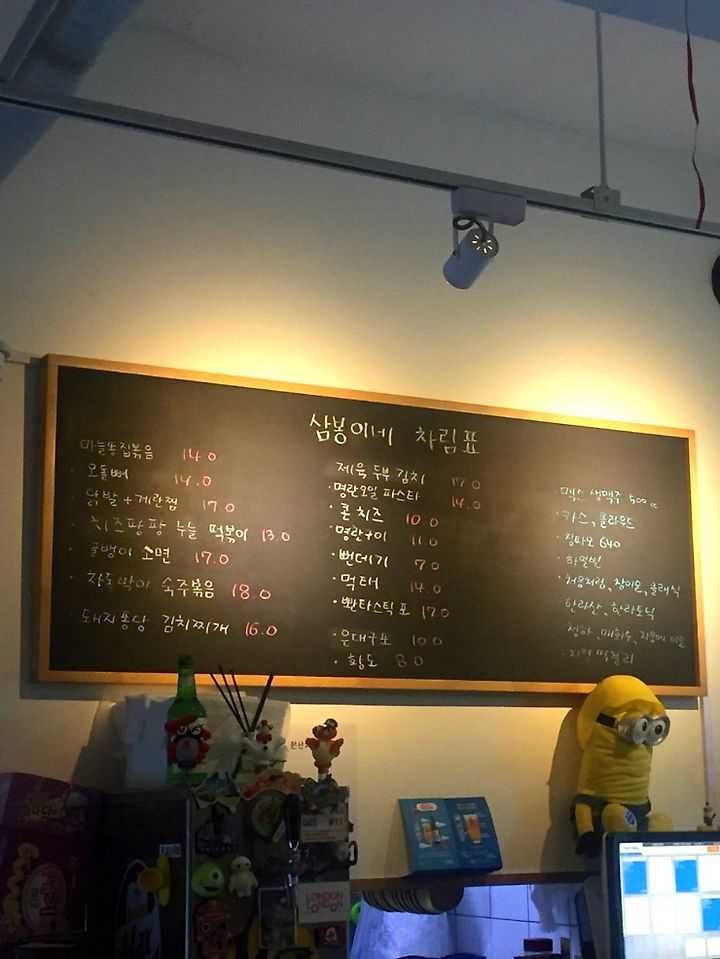 삼봉이네 차림표
마늘똥집볶음 14.0
오돌뼈 14.0
닭발+계란찜 17.0
치즈팡팡 누들 떡볶이 13.0
골뱅이 소면 17.0
차돌박이 숙주볶음 18.0
돼지퐁당 김치찌개 16.0
제육 두부 김치 17.0
명란오일 파스타 14.0
콘치즈 10.0
명란구이 11.0
뻔데기 7.0
먹태 14.0
뽄타스틱포 17.0
은대구포 10.0
황도 8.0
맥스 생맥주 500cc
카스, 클라우드
칭따오 640
하얼빈
처음처럼, 참이슬, 클래식
한라산, 한라토닉
청하, 매화수,
막걸리
LONDON